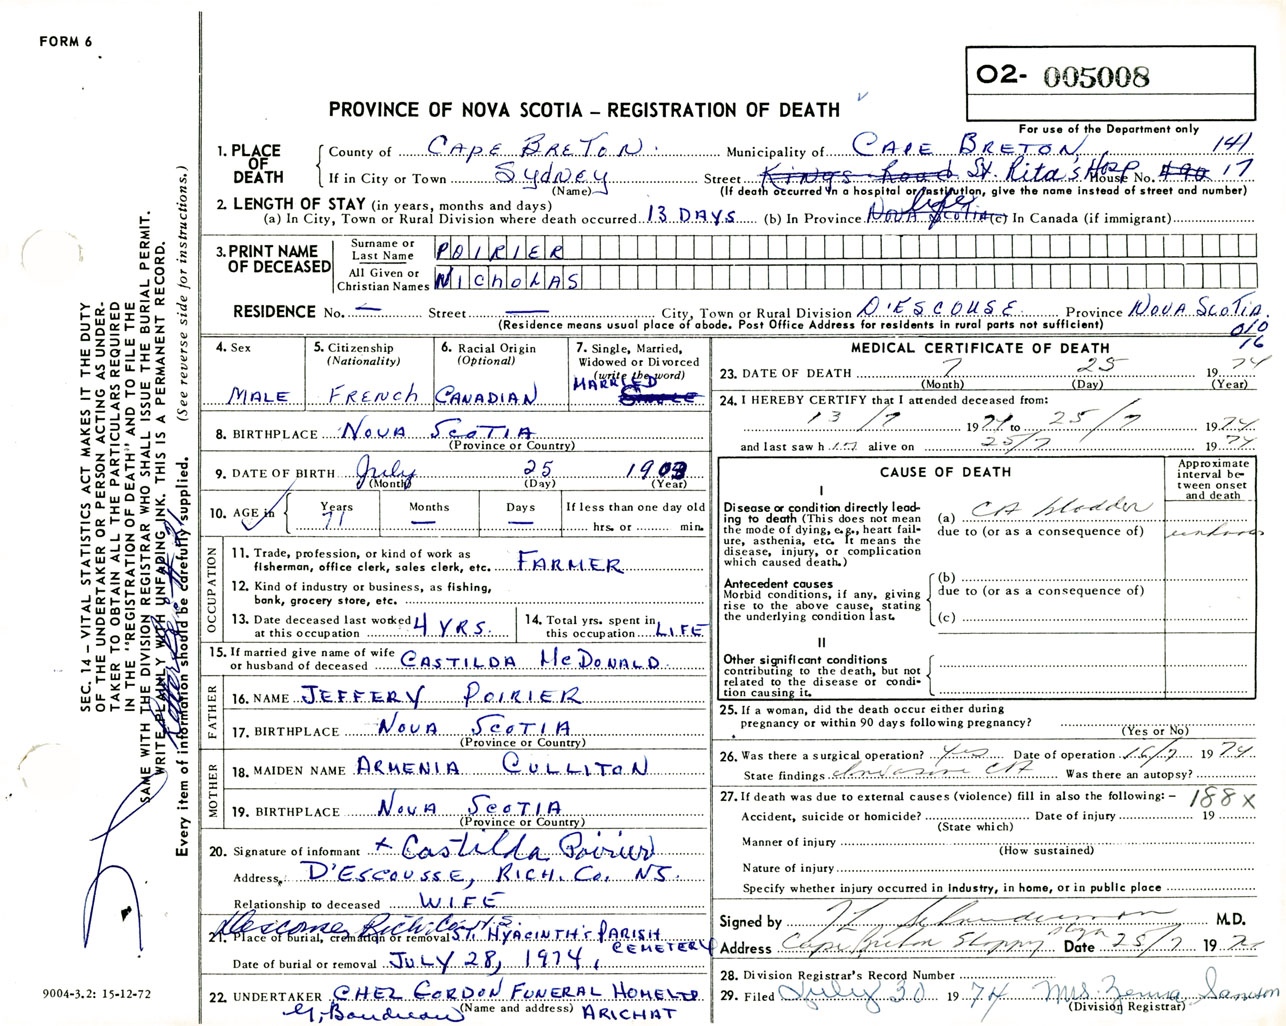 FORM 6
O2- 005008
PROVINCE OF NOVA SCOTIA – REGISTRATION OF DEATH
For use of the Department only
1. PLACE OF DEATH County of CAPE BRETON Municipality of CAPE BRETON 141
If in City or Town SYDNEY Street Kings Road St Rita's Hosp House No. 490 17
(Name) (If death occurred in a hospital or institution, give the name instead of street and number)
2. LENGTH OF STAY (in years, months and days)
(a) In City, Town or Rural Division where death occurred 13 DAYS (b) In Province NOVA SCOTIA life (c) In Canada (if immigrant)
3. PRINT NAME OF DECEASED Surname or Last Name POIRIER
All Given or Christian Names NICHOLAS
RESIDENCE No. — Street — City, Town or Rural Division D'ESCOUSE Province NOVA SCOTIA.
(Residence means usual place of abode. Post Office Address for residents in rural parts not sufficient)
010
16
4. Sex MALE
5. Citizenship (Nationality) FRENCH
6. Racial Origin (Optional) CANADIAN
7. Single, Married, Widowed or Divorced (write the word) MARRIED
8. BIRTHPLACE NOVA SCOTIA
(Province or Country)
9. DATE OF BIRTH July 25 1903
(Month) (Day) (Year)
10. AGE in Years 71 Months — Days — If less than one day old
hrs. or min.
OCCUPATION
11. Trade, profession, or kind of work as fisherman, office clerk, sales clerk, etc. FARMER
12. Kind of industry or business, as fishing, bank, grocery store, etc.
13. Date deceased last worked at this occupation 4 YRS.
14. Total yrs. spent in this occupation LIFE
15. If married give name of wife or husband of deceased CASTILDA McDONALD
FATHER
16. NAME JEFFERY POIRIER
17. BIRTHPLACE NOVA SCOTIA
(Province or Country)
MOTHER
18. MAIDEN NAME ARMENIA CULLITON
19. BIRTHPLACE NOVA SCOTIA
(Province or Country)
20. Signature of informant + Castilda Poirier
Address D'ESCOUSSE, RICH. CO. NS.
Relationship to deceased WIFE
Descousse Rich Co N.S.
21. Place of burial, cremation or removal ST. HYACINTH'S PARISH CEMETERY
Date of burial or removal JULY 28, 1974,
22. UNDERTAKER CHEZ GORDON FUNERAL HOME LTD
G. Boudreau (Name and address) ARICHAT
MEDICAL CERTIFICATE OF DEATH
23. DATE OF DEATH 7 25 1974
(Month) (Day) (Year)
24. I HEREBY CERTIFY that I attended deceased from:
13/7 1974 to 25/7 1974
and last saw h im alive on 25/7 1974
CAUSE OF DEATH
Approximate interval between onset and death
I
Disease or condition directly leading to death (This does not mean the mode of dying, e.g., heart failure, asthenia, etc. It means the disease, injury, or complication which caused death.)
(a) CA bladder unknown
due to (or as a consequence of)
Antecedent causes
Morbid conditions, if any, giving rise to the above cause, stating the underlying condition last.
(b)
due to (or as a consequence of)
(c)
II
Other significant conditions
contributing to the death, but not related to the disease or condition causing it.
25. If a woman, did the death occur either during pregnancy or within 90 days following pregnancy?
(Yes or No)
26. Was there a surgical operation? yes Date of operation 16/7 1974
State findings Invasive CA Was there an autopsy?
27. If death was due to external causes (violence) fill in also the following: – 188x
Accident, suicide or homicide? Date of injury 19
(State which)
Manner of injury
(How sustained)
Nature of injury
Specify whether injury occurred in industry, in home, or in public place
Signed by M.D.
Address Cape Breton Date 25/7 19
28. Division Registrar's Record Number
29. Filed July 30 1974 Mrs. Zenna Samson
(Division Registrar)
SEC. 14 – VITAL STATISTICS ACT MAKES IT THE DUTY
OF THE UNDERTAKER OR PERSON ACTING AS UNDER-
TAKER TO OBTAIN ALL THE PARTICULARS REQUIRED
IN THE "REGISTRATION OF DEATH" AND TO FILE THE
SAME WITH THE DIVISION REGISTRAR WHO SHALL ISSUE THE BURIAL PERMIT.
WRITE PLAINLY WITH UNFADING INK. THIS IS A PERMANENT RECORD.
Every item of information should be carefully supplied. (See reverse side for instructions.)
9004-3.2: 15-12-72